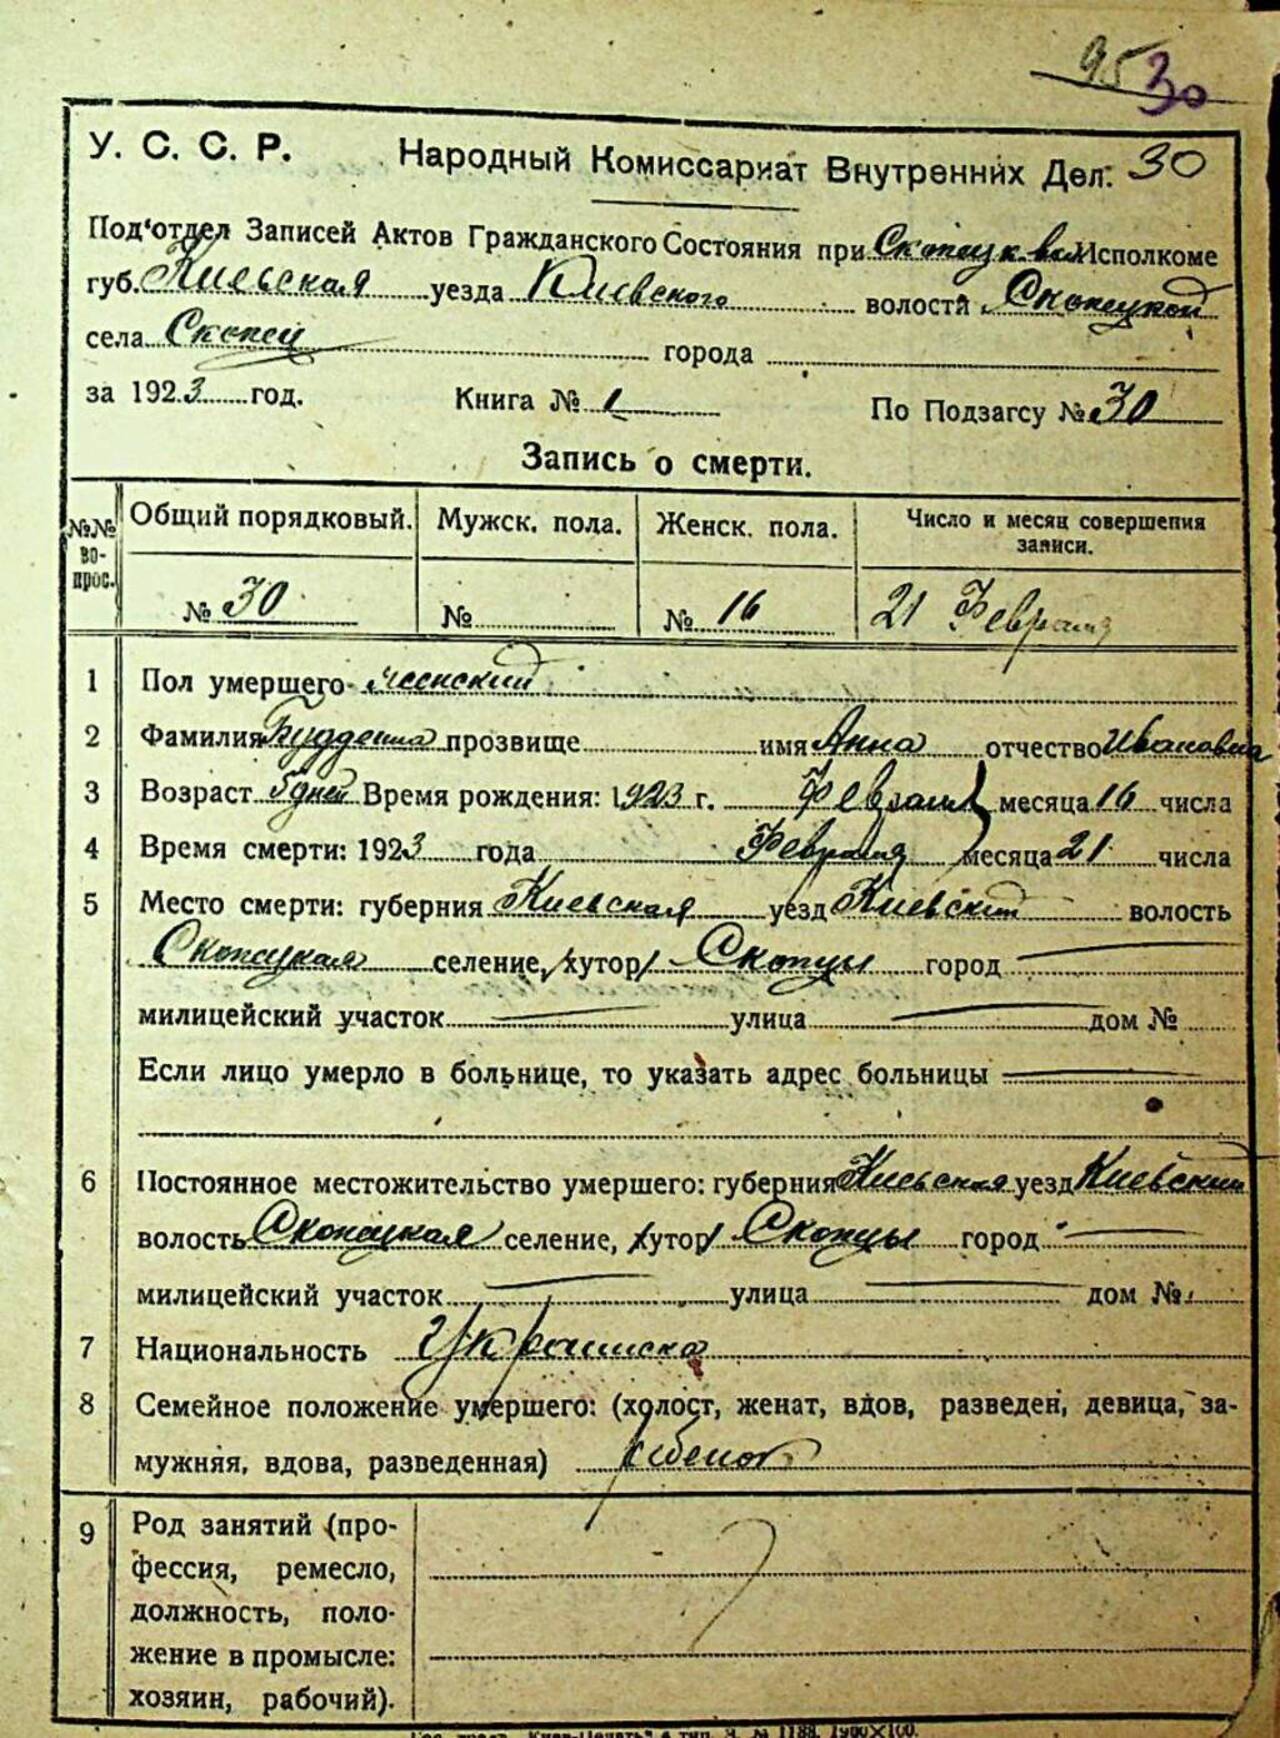 95 30
У. С. С. Р. Народный Комиссариат Внутренних Дел. 30
Под'отдел Записей Актов Гражданского Состояния при Исполкоме
губ. Киевская уезда Киевского волости Скопецкой
села
за 1923 год. Книга № 1 По Подзагсу № 30
Запись о смерти.
№№ вопрос. Общий порядковый. Мужск. пола. Женск. пола. Число и месяц совершения записи.
№ 30 № № 16 21 Февраля
1 Пол умершего женский
2 Фамилия прозвище имя Анна отчество Ивановна
3 Возраст 5 дней Время рождения: 1923 г. Февраля месяца 16 числа
4 Время смерти: 1923 года Февраля месяца 21 числа
5 Место смерти: губерния Киевская уезд Киевский волость
Скопецкая селение, хутор Скопцы город
милицейский участок улица дом №
Если лицо умерло в больнице, то указать адрес больницы
6 Постоянное местожительство умершего: губерния Киевская уезд Киевский
волость Скопецкая селение, хутор Скопцы город
милицейский участок улица дом №
7 Национальность Украинска
8 Семейное положение умершего: (холост, женат, вдов, разведен, девица, за-
мужняя, вдова, разведенная) ребенок
9 Род занятий (про-
фессия, ремесло,
должность, поло-
жение в промысле:
хозяин, рабочий).